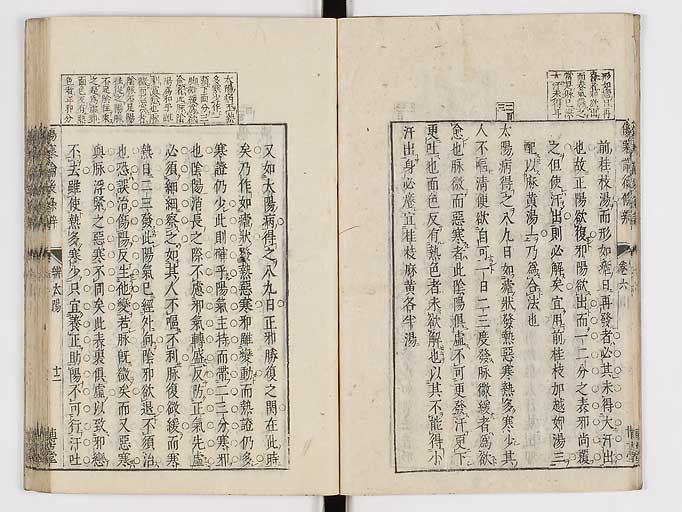 卷六
前桂枝湯而形如瘧日再發者必其未得大汗出
也故正陽欲復邪陽欲出而一二分之表邪尚覆
之但使汗出則必解矣宜用前桂枝加越婢湯三
配以麻黃湯一乃爲合法也
太陽病得之八九日如瘧狀發熱惡寒熱多寒少其
人不嘔清便欲自可一日二三度發脉微緩者爲欲
愈也脉微而惡寒者此陰陽俱虛不可更發汗更下
更吐也面色反有熱色者未欲解也以其不能得小
汗出身必癢宜桂枝麻黃各半湯
又如太陽病得之八九日正邪勝復之関在此時
矣乃作如瘧狀發熱惡寒邪雖變動而熱證仍多
寒證仍少此則神乎陽氣主持而帶一二分寒邪
也陰陽消長之際不慮邪氣轉盛反防正氣先虛
必須細細察之如其人不嘔不利脉復欲緩而寒
熱日二三發此陽氣已經外向陰邪欲退不須治
也恐誤治傷陽反生他變若脉既微矣而又惡寒
與脉浮緊之惡寒不同矣此表裏俱虛以致邪戀
不去雖使熱多寒少只宜養正助陽不可行汗吐
辨太陽 十二